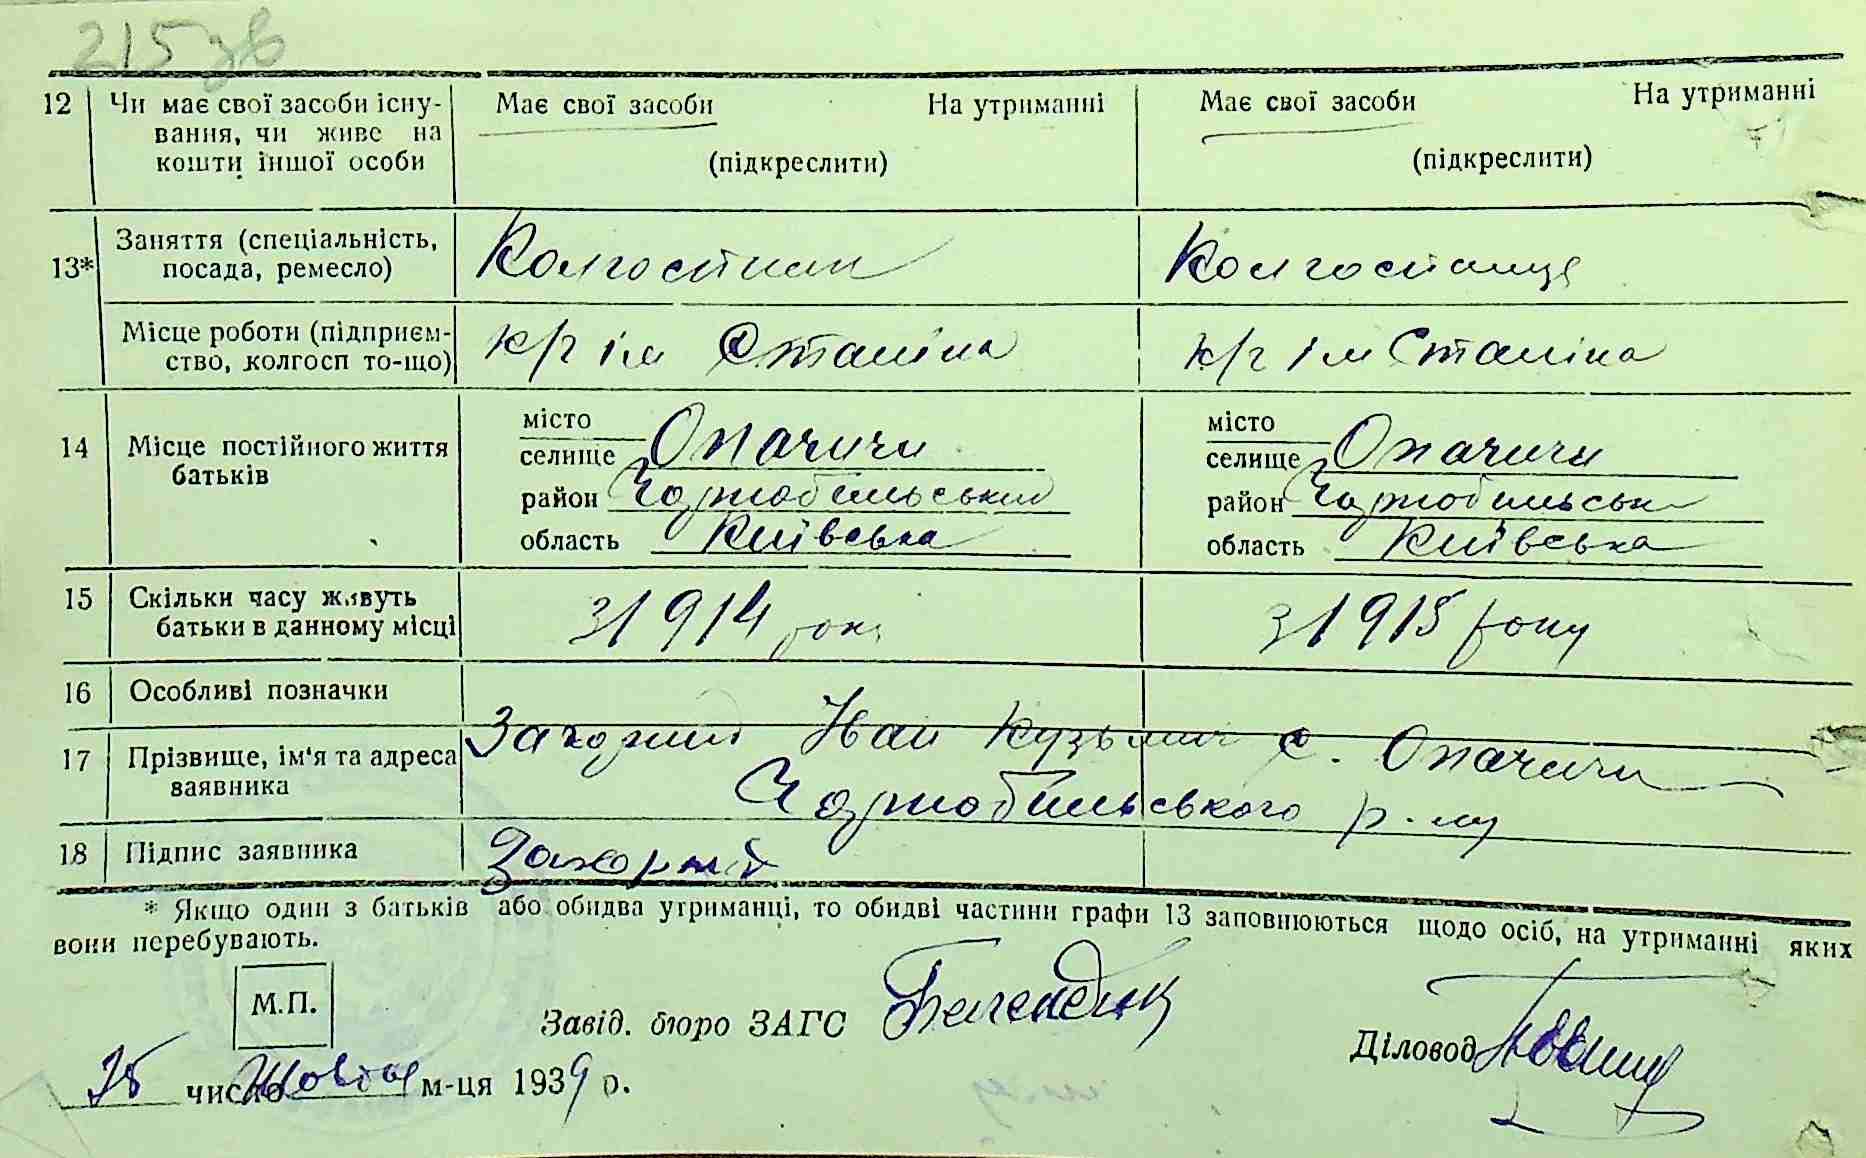 215 зв
12 Чи має свої засоби існу- Має свої засоби На утриманні Має свої засоби На утриманні
вання, чи живе на
кошти іншої особи (підкреслити) (підкреслити)
13* Заняття (спеціальність, Колгоспник Колгоспниця
посада, ремесло)
Місце роботи (підприєм- к/г ім Сталіна к/г ім Сталіна
ство, колгосп то-що)
14 Місце постійного життя місто місто
батьків селище Опачичи селище Опачичи
район Чорнобильський район Чорнобильськ
область Київська область Київська
15 Скільки часу живуть з 1914 року з 1915 року
батьки в данному місці
16 Особливі позначки
17 Прізвище, ім'я та адреса Захожий Іван Кузьмич с. Опачичи
заявника Чорнобильського р-ну
18 Підпис заявника
* Якщо один з батьків або обидва утриманці, то обидві частини графи 13 заповнюються щодо осіб, на утриманні яких
вони перебувають.
М.П.
Завід. бюро ЗАГС
Діловод
25 число Жовтня м-ця 1939 р.